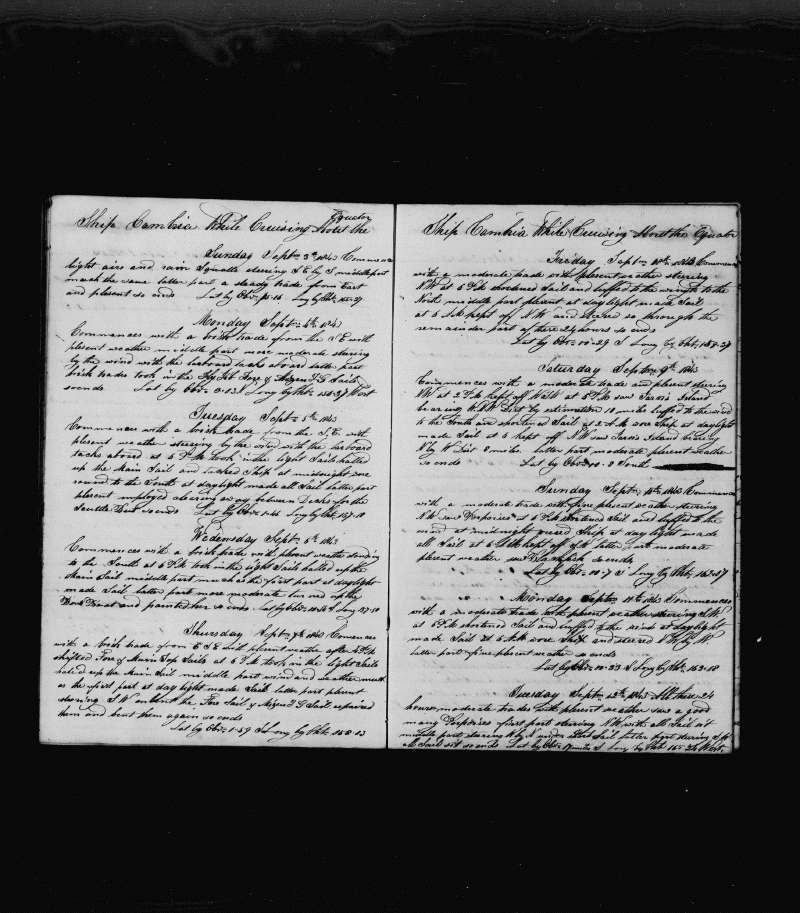 Ship Cambria While Cruising About the Equator
Sunday Sept 3rd 1843 Commences
light airs and rain Squalls steering S E by S middle part
much the same latter part a steady trade from East
and plesent so ends Lat by Obs Long by Chr
Monday Sept 4th 1843
Commances with a brisk trade from the S E with
plesent weather middle part more moderate stearing
by the wind with the larboard tacks aboard latter part
brisk trades took in the Fly Jib Fore & Mizen T G Sails
so ends Lat by Obs 0-13 S Long by Chr West
Tuesday Sept 5th 1843
Commences with a brisk trade from the S, E with
plesent weather stearing by the wind with the larboard
tacks aboard at 6 P M took in the light Sails halled
up the Main Sail and tacked Ship at midnight wore
round to the South at daylight made all Sail latter part
plesent imployed clearing away between Decks for the
so ends Lat by Obs 1-44 Long by Chr 157-10
Wedensday Sept 6th 1843
Commences with a brisk trade with plesent weather standing
to the South at 6 P M took in the light Sails halled up the
Main Sail middle part much as the first part at daylight
made Sail latter part more moderate turned up the
Boat and painted her so ends Lat by Obs Long 157-10
Thursday Sept 7th 1843 Comences
with a brisk trade from E S E with plesent weather
shifted Fore & Main Top Sails at 6 P M took in the light Sails
haled up the Main Sail middle part wind and weather much
as the first part at day light made Sail latter part plesent
stearing S W unbent the Fore Sail & Mizen T G Sail repaired
them and bent them again so ends
Lat by Obs 1-59 S Long by Chr 158-13
Ship Cambria While Cruising About the Equator
Friday Sept 1843 Commences
with a moderate trade with plesent weather stearing
NW at 6 P M shortened Sail and luffed to the wind to the
North middle part plesent at day light made Sail
at 6 A M kept off N W and steered so through the
remainder part of these 24 hours so ends
Lat by Obs 00-29 S Long by Chr 158-37
Saturday Sept 9th 1843
Commences with a moderate trade and plesent stearing
NW at 2 P M kept off at 5 P M saw Jarvis Island
bearing Dist by estimation 10 miles luffed to the wind
to the South and shortened Sail at 2 A M wore Ship at daylight
made Sail at 8 kept off N W saw Jarvis Island bearing
N by W Dist 8 miles. latter part moderate plesent weather
so ends Lat by Obs 00-8 South
Sunday Sept 10th 1843 Commences
with a moderate trade with fine plesent weather stearing
N W saw Porpoises at 6 P M shortened Sail and luffed to the
wind at midnight wore Ship at day light made
all Sail at 6 A M kept off latter part moderate
plesent weather so ends
Lat by Obs 00-7 S Long by Chr
Monday Sept 11th 1843 Commences
with a moderate trade with plesent weather stearing S W
at 6 P M shortened Sail and luffed to the wind at daylight
made Sail at 6 A M wore Ship and steered W by N
latter part fine plesent weather so ends
Lat by Obs 00-33 S Long by Chr 163-18
Tuesday Sept 12th 1843 All these 24
hours moderate trades with plesent weather saw a good
many Porpoises first part stearing N W with all Sail out
middle part stearing W by N under short Sail latter part stearing
Sail out so ends Lat by Obs miles S Long by Chr 165-26 West.